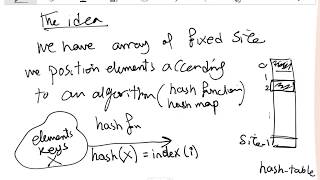 The idea
We have array of fixed Size
we position elements according
to an algorithm (hash function)
hash map
elements
keys
X
hash fn
hash(X) = index(i)
0
1
2
Size-1
hash-table